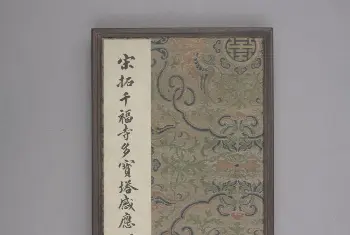 宋拓千福寺多寶塔感應